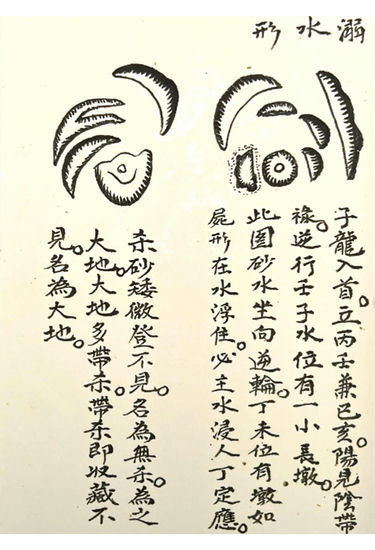 溺水形
子龍入首。立丙壬兼巳亥。陽見陰帶
祿。逆行壬子水位有一小長墩。
此图砂水坐向逆輪。丁未位有墩如
屍形在水浮住。必主水浸人丁定應。
杀砂矮微登不見。名為無杀。為之
大地。大地多帶杀。帶杀即收藏不
見。名為大地。